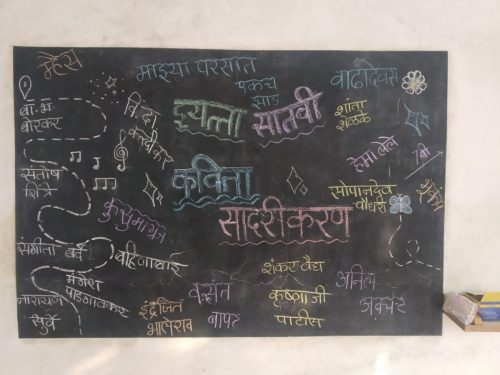 म्हैस
माझ्या परसात
एकच
झाड
वाढदिवस
बा.भ
बोरकर
विंदा
करंदीकर
इयत्ता सातवी
शांता
शेळके
हेमा लेले
7 वी
संतोष
शिंत्रे
कविता
सोपानदेव
चौधरी
कुसुमाग्रज
सादरीकरण
संगीता बर्वे
बहिणाबाई
मंगेश
पाडगावकर
शंकर वैद्य
अनिल
अवचट
नारायण
सुर्वे
इंद्रजित
भालेराव
वसंत
बापट
कृष्णाजी
पाटील